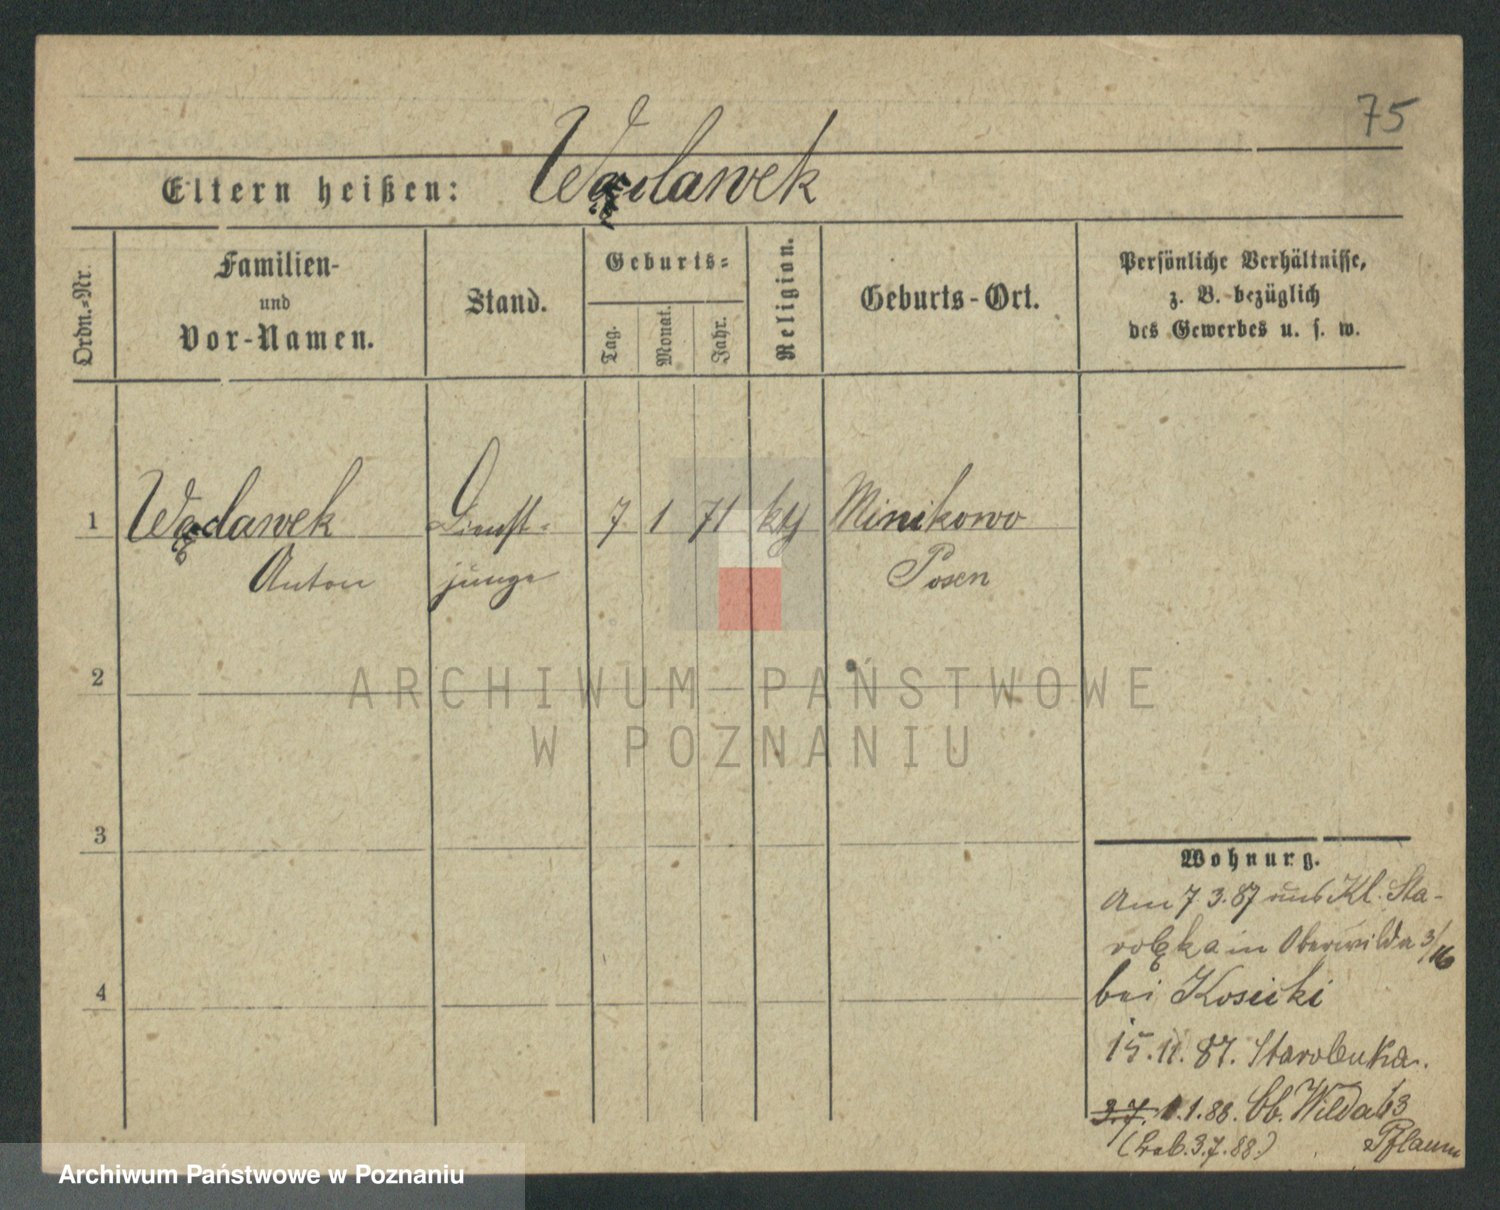 75
Eltern heißen: Wacławek
Ordn.-Nr.
Familien-
und
Vor-Namen.
Stand.
Geburts-
Tag.
Monat.
Jahr.
Religion.
Geburts-Ort.
Persönliche Verhältnisse,
z. B. bezüglich
des Gewerbes u. s. w.
1 Wacławek Dienst- 7 1 71 kth Minikowo
Anton junge Posen
ARCHIWUM PAŃSTWOWE
W POZNANIU
2
3
4
Wohnung.
Am 7.3.87 aus Kl. Sta-
rolęka in Oberwilda 3/16
bei Kosicki
15.11.87. Starolenka.
3.7. 1.1.88. Ob. Wilda 63
3.7.88.) Pflaum
Archiwum Państwowe w Poznaniu